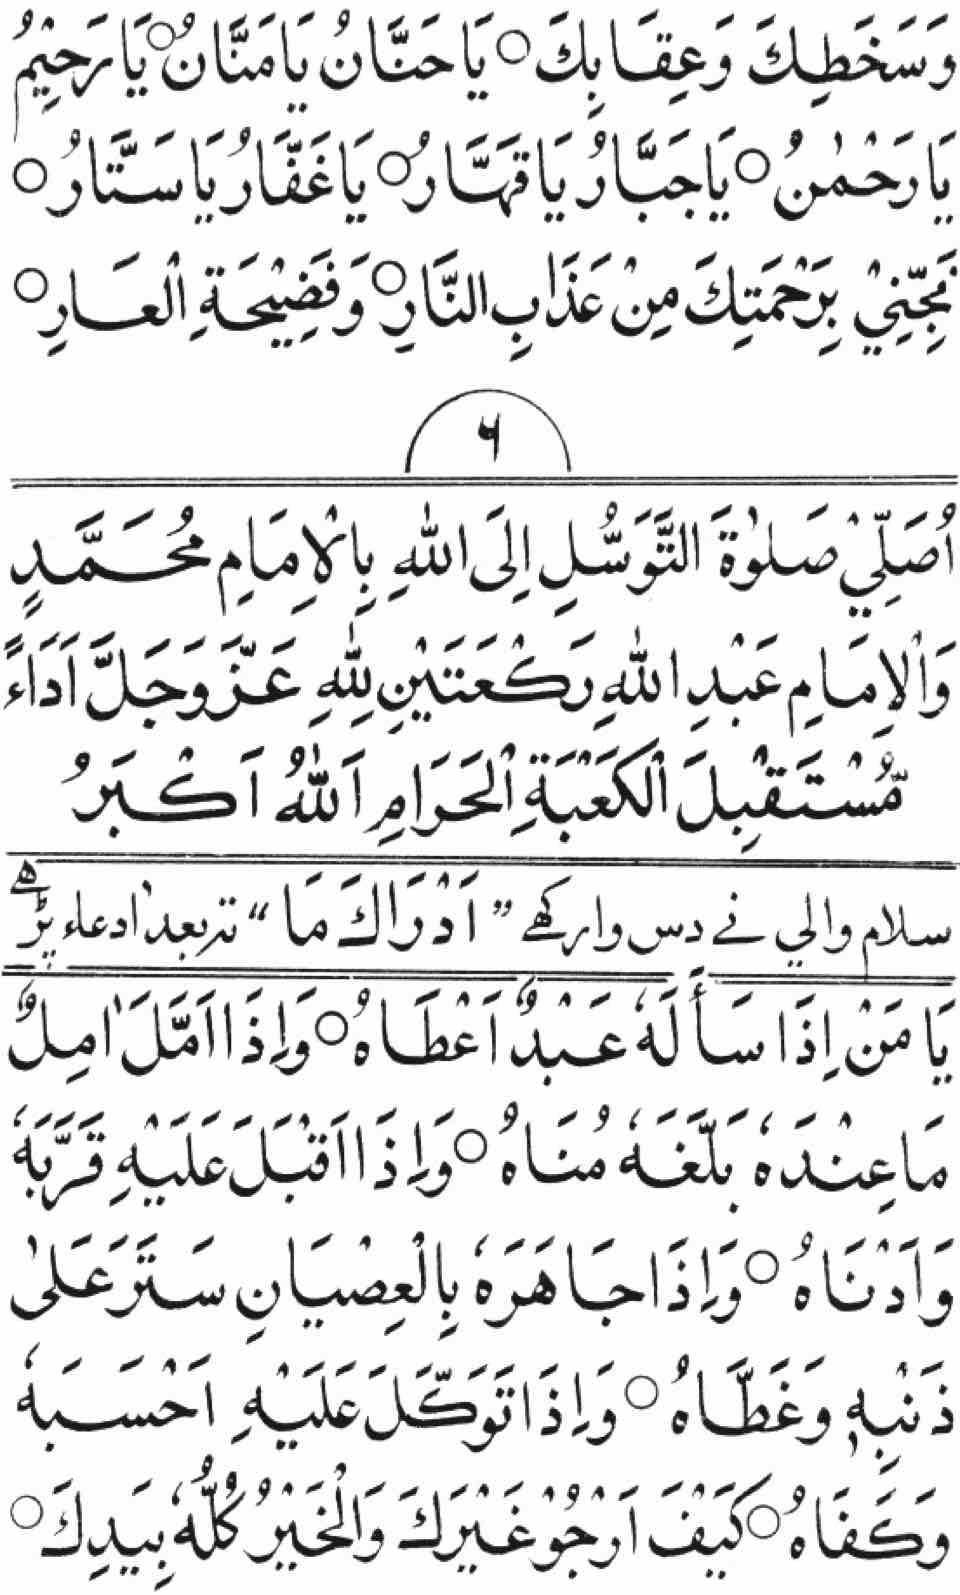 وَسَخَطِكَ وَعِقَابِكَ ○ يَاحَنَّانُ يَامَنَّانُ ○ يَارَحِيْمُ
يَارَحْمٰنُ ○ يَاجَبَّارُ يَاقَهَّارُ ○ يَاغَفَّارُ يَاسَتَّارُ ○
نَجِّنِيْ بِرَحْمَتِكَ مِنْ عَذَابِ النَّارِ ○ وَفَضِيْحَةِ الْعَارِ ○
۶
اُصَلِّيْ صَلٰوةَ التَّوَسُّلِ اِلَى اللهِ بِالْاِمَامِ مُحَمَّدٍ
وَالْاِمَامِ عَبْدِ اللهِ رَكْعَتَيْنِ لِلّٰهِ عَزَّ وَجَلَّ اَدَاءً
مُّسْتَقْبِلَ الْكَعْبَةِ الْحَرَامِ اَللهُ اَكْبَرُ
سلام والي نے دس وار كهے "اَدْرَاكَ مَا" تہ بعد ا دعاء پڑهے
يَا مَنْ اِذَا سَأَلَهٗ عَبْدٌ اَعْطَاهُ ○ وَاِذَا اَمَّلَ اٰمِلٌ
مَاعِنْدَهٗ بَلَّغَهٗ مُنَاهُ ○ وَاِذَا اَقْبَلَ عَلَيْهِ قَرَّبَهٗ
وَاَدْنَاهُ ○ وَاِذَا جَاهَرَهٗ بِالْعِصْيَانِ سَتَرَ عَلٰى
ذَنْبِهٖ وَغَطَّاهُ ○ وَاِذَا تَوَكَّلَ عَلَيْهِ اَحْسَبَهٗ
وَكَفَاهُ ○ كَيْفَ اَرْجُوْ غَيْرَكَ وَالْخَيْرُ كُلُّهٗ بِيَدِكَ ○